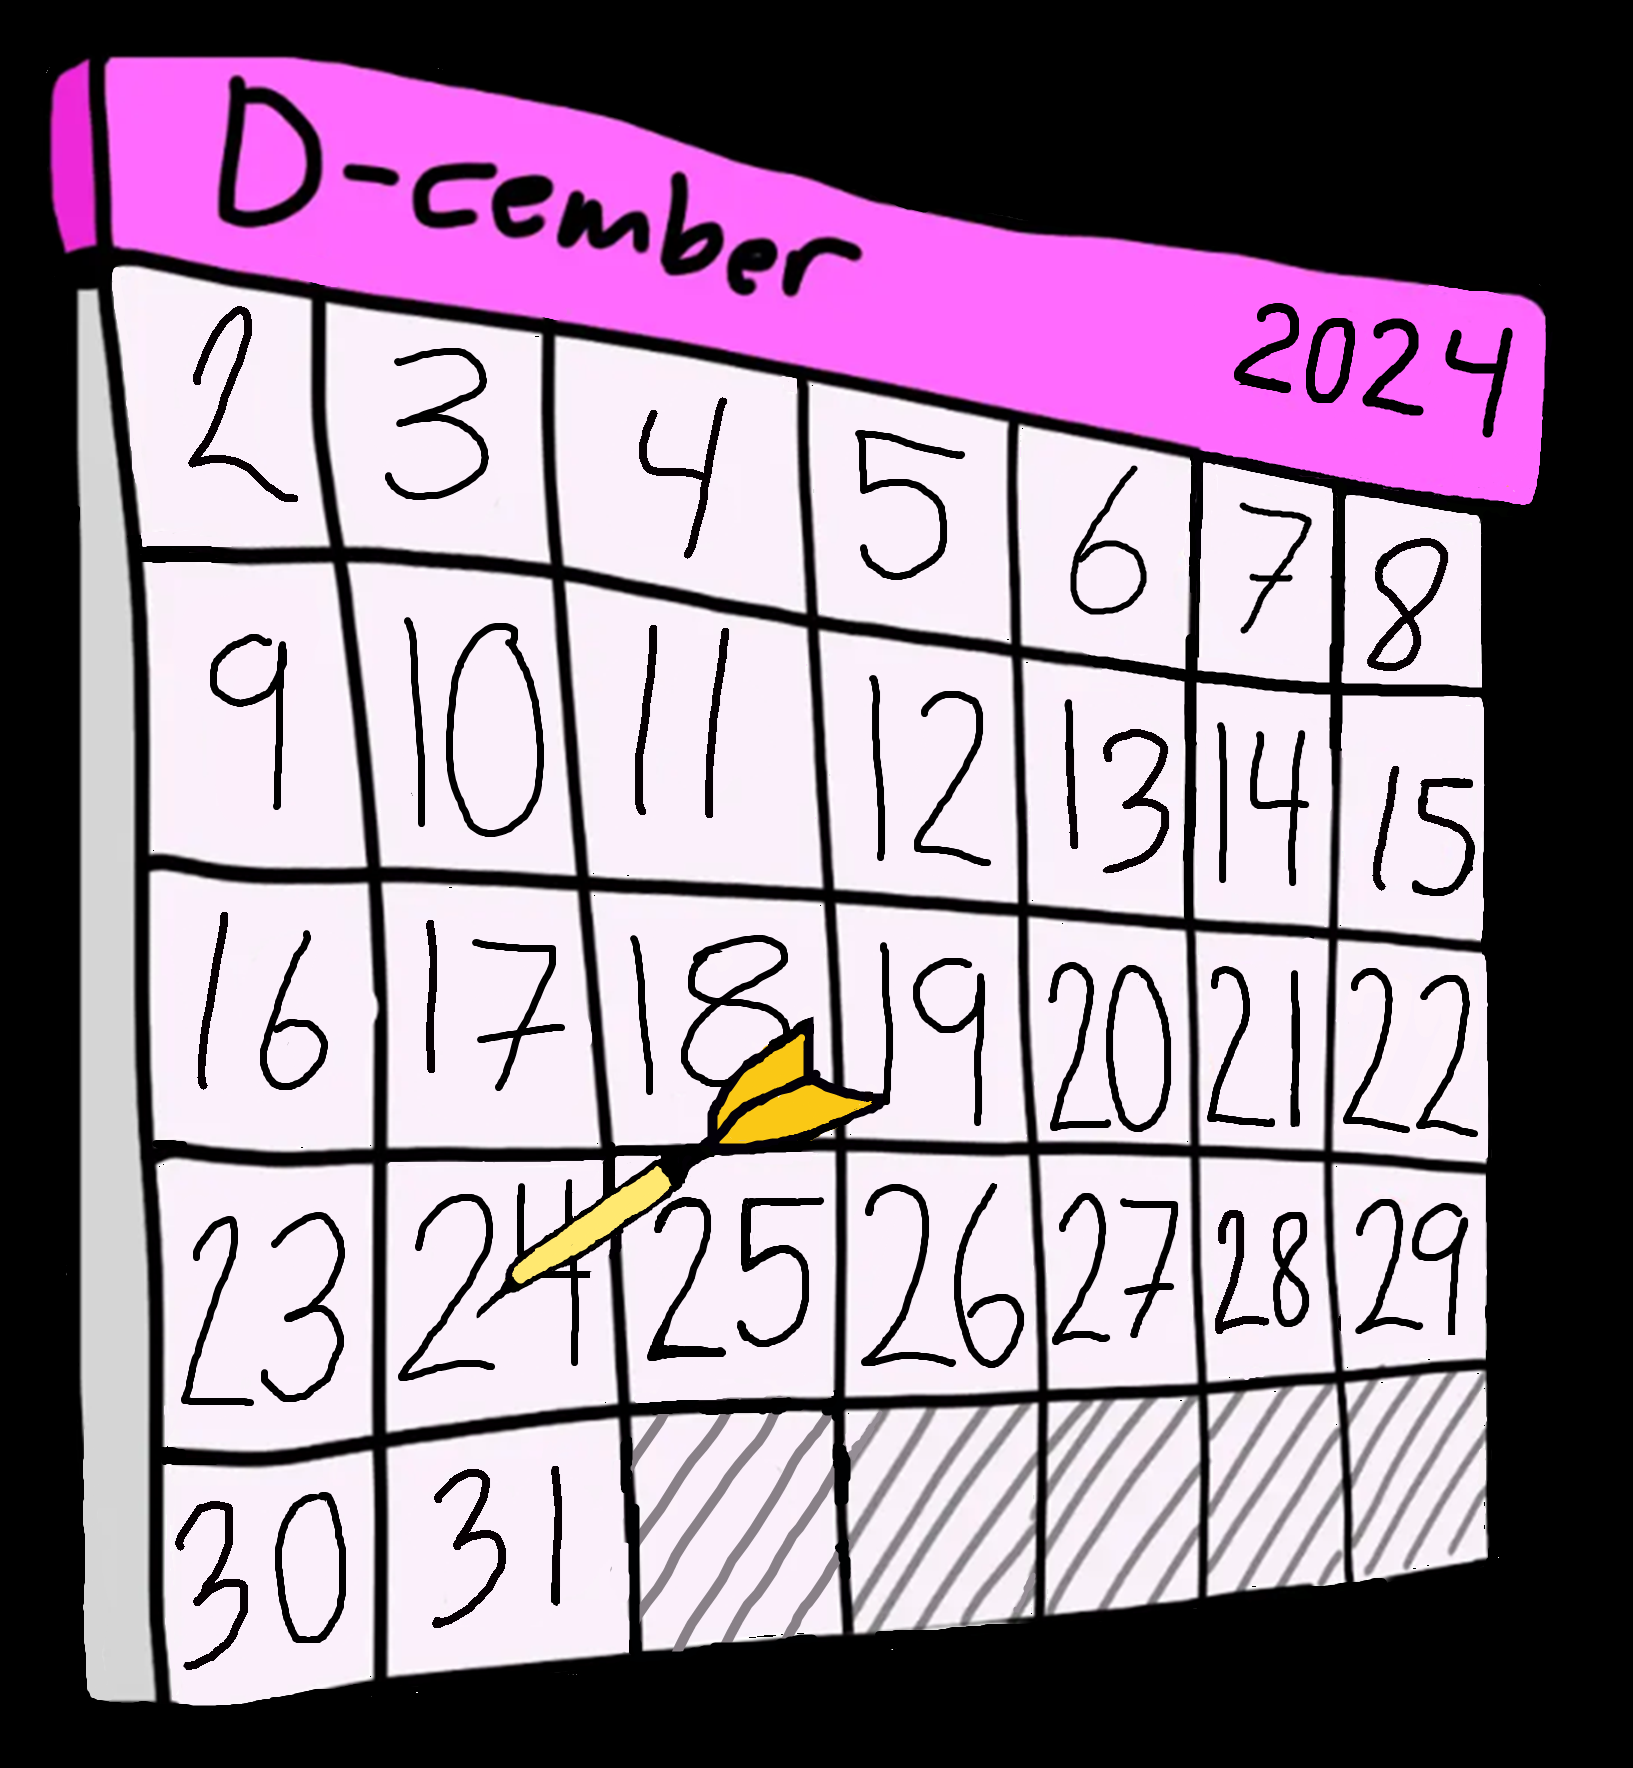 D-cember
2024
2 3 4 5 6 7 8
9 10 11 12 13 14 15
16 17 18 19 20 21 22
23 24 25 26 27 28 29
30 31